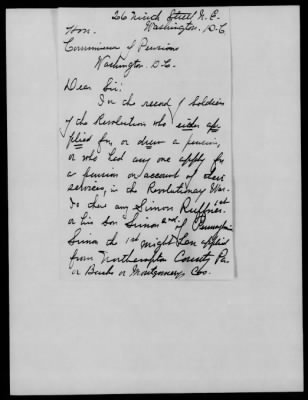 266 Ninth Street N.E.
Washington, D.C.
Hon.
Commissioner of Pensions
Washington D.C.
Dear Sir:
In the record of Soldiers
of the Revolution who either ap
plied for, or drew a pension,
or who had any one apply for
a pension on account of their
services, in the Revolutionary War.
Is there any Simon Ruffner 1st
or his son Simon 2nd of Pennsylvania
Simon the 1st might have applied
from Northampton County Pa
or Bucks or Montgomery Cos.